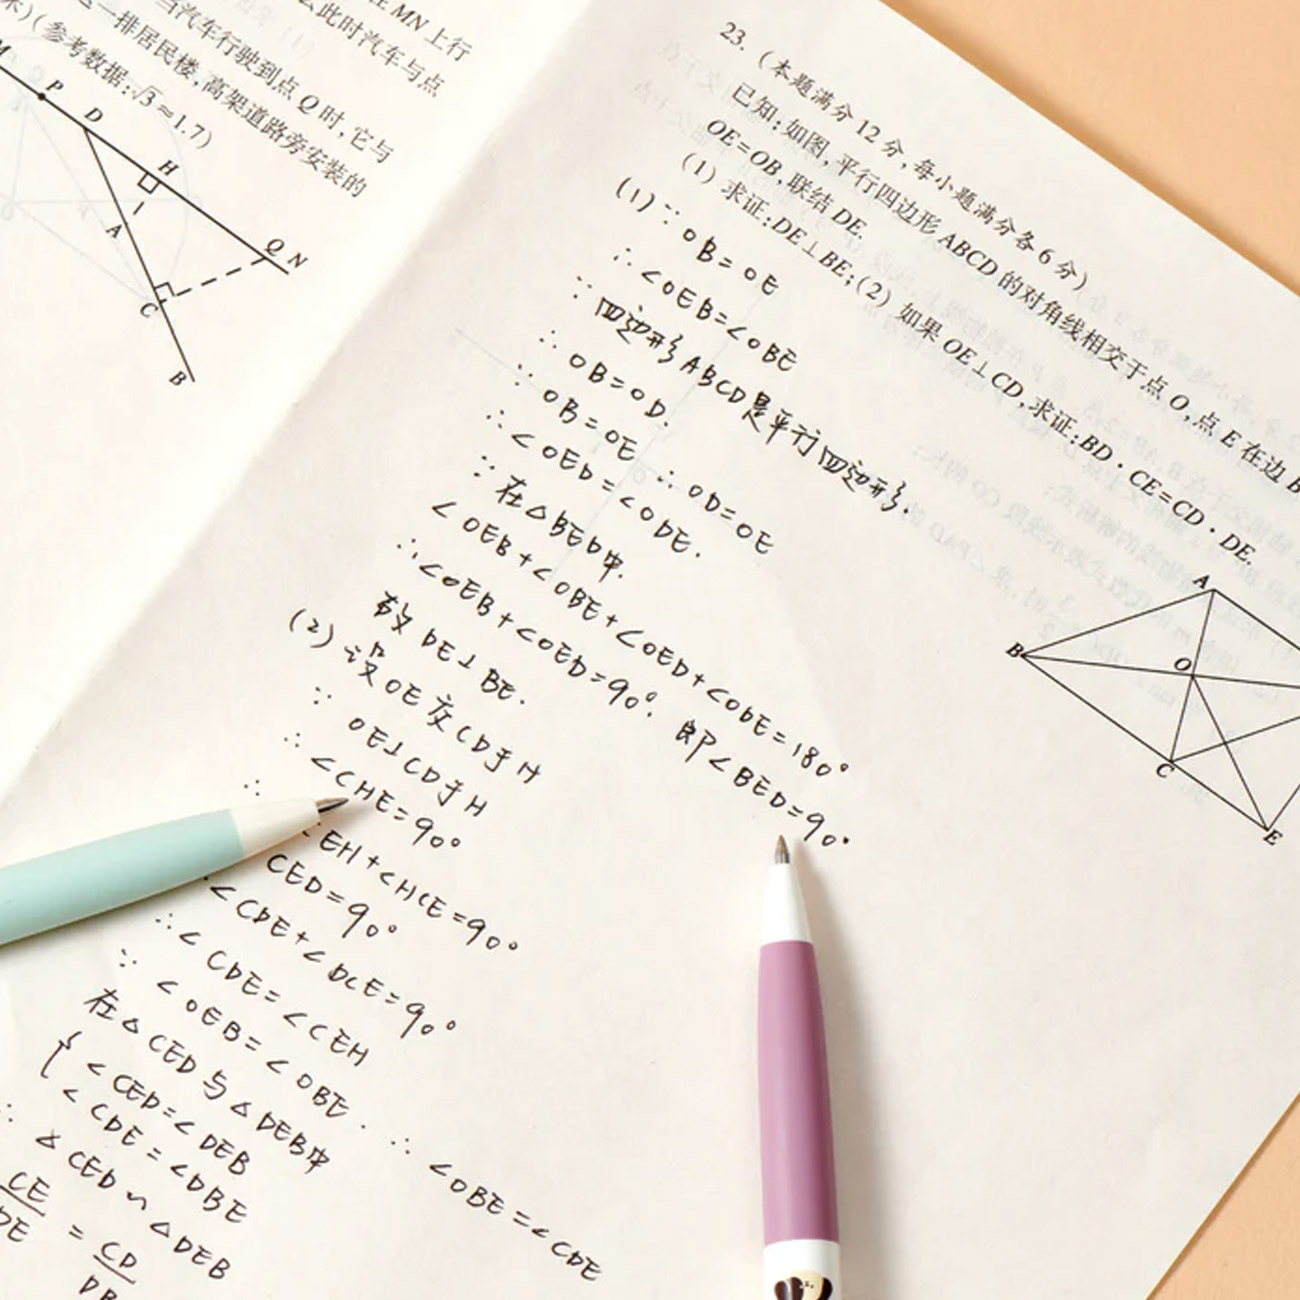 在 MN 上行
么此时汽车与点
当汽车行驶到点 Q 时,它与
一排居民楼,高架道路旁安装的
(参考数据:√3≈1.7)
P
D
H
1
A
Q N
C
B
23. (本题满分 12 分,每小题满分各 6 分)
已知:如图,平行四边形 ABCD 的对角线相交于点 O,点 E 在边 B
OE=OB,联结 DE.
(1) 求证:DE⊥BE;(2) 如果 OE⊥CD,求证:BD·CE=CD·DE.
(1)∵ OB=OE
∴∠OEB=∠OBE
∵四边形ABCD是平行四边形.
∴ OB=OD.
∵ OB=OE ∴ OD=OE
∴∠OED=∠ODE.
∵在△BED中.
∠OEB+∠OBE+∠OED+∠ODE=180°
∴∠OEB+∠OED=90°. 即∠BED=90°
故 DE⊥BE.
(2) 设OE交CD于H
∵ OE⊥CD于H
∴ ∠CHE=90°
∴
EH+∠HCE=90°
CED=90°
∠CDE+∠DCE=90°
∴∠CDE=∠CEH
∵ ∠OEB=∠OBE. ∴ ∠DBE=∠CDE
在△CED与△DEB中
{∠CED=∠DEB
∠CDE=∠DBE
∴ △CED∽△DEB
CE/DE = CD/DB
A
B
O
C
E